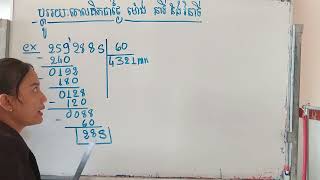 ប្តូររយៈពេលគិតជាថ្ងៃ ម៉ោង នាទី និងវិនាទី
ex 259288s 60
- 240 4321mn
0192
- 180
0128
- 120
0088
- 60
28s